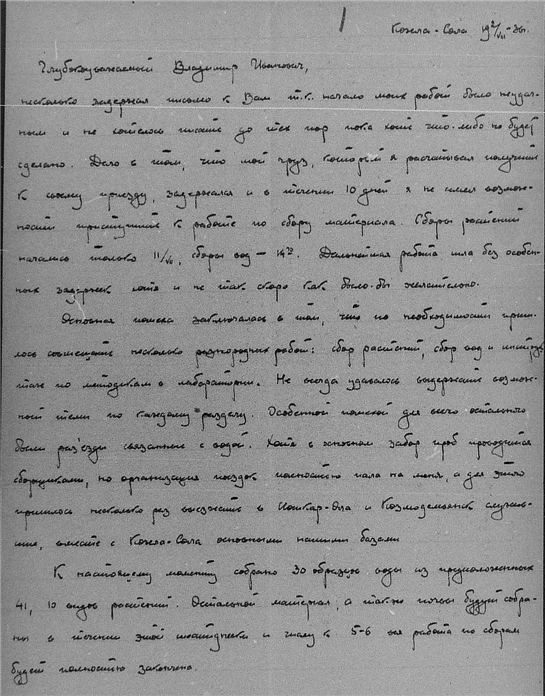 1
Кожла-Сола 19 2/VII - 36.
Глубокоуважаемый Владимир Иванович,
несколько задержал письмо к Вам т.к. начало моих работ было неудач-
ным и не хотелось писать до тех пор пока хоть что-либо не будет
сделано. Дело в том, что мой груз, который я расчитывал получить
к своему приезду, задержался и в течении 10 дней я не имел возмож-
ности приступить к работе по сбору материала. Сборы растений
начались только 11/VI, сборы вод — 14го. Дальнейшая работа шла без особен-
ных задержек хотя и не так скоро как было-бы желательно.
Основная помеха заключалась в том, что по необходимости приш-
лось совмещать несколько разнородных работ: сбор растений, сбор вод и инструк
таж по методикам в лаборатории. Не всегда удавалось выдержать возмож-
ный темп по каждому разделу. Особенной помехой для всего остального
были раз'езды связанные с водой. Хотя в основном забор проб проводится
сборщиками, но организация поездок полностью пала на меня, а для этого
пришлось несколько раз выезжать в Йошкар-Ола и Козмодемьянск служив-
шие, вместе с Кожла-Сола основными нашими базами.
К настоящему моменту собрано 30 образцов воды из предположенных
41, 10 видов растений. Остальной материал, а также почвы будут собра-
ны в течении этой шестидневки и числу к 5-6 вся работа по сборам
будет полностью закончена.